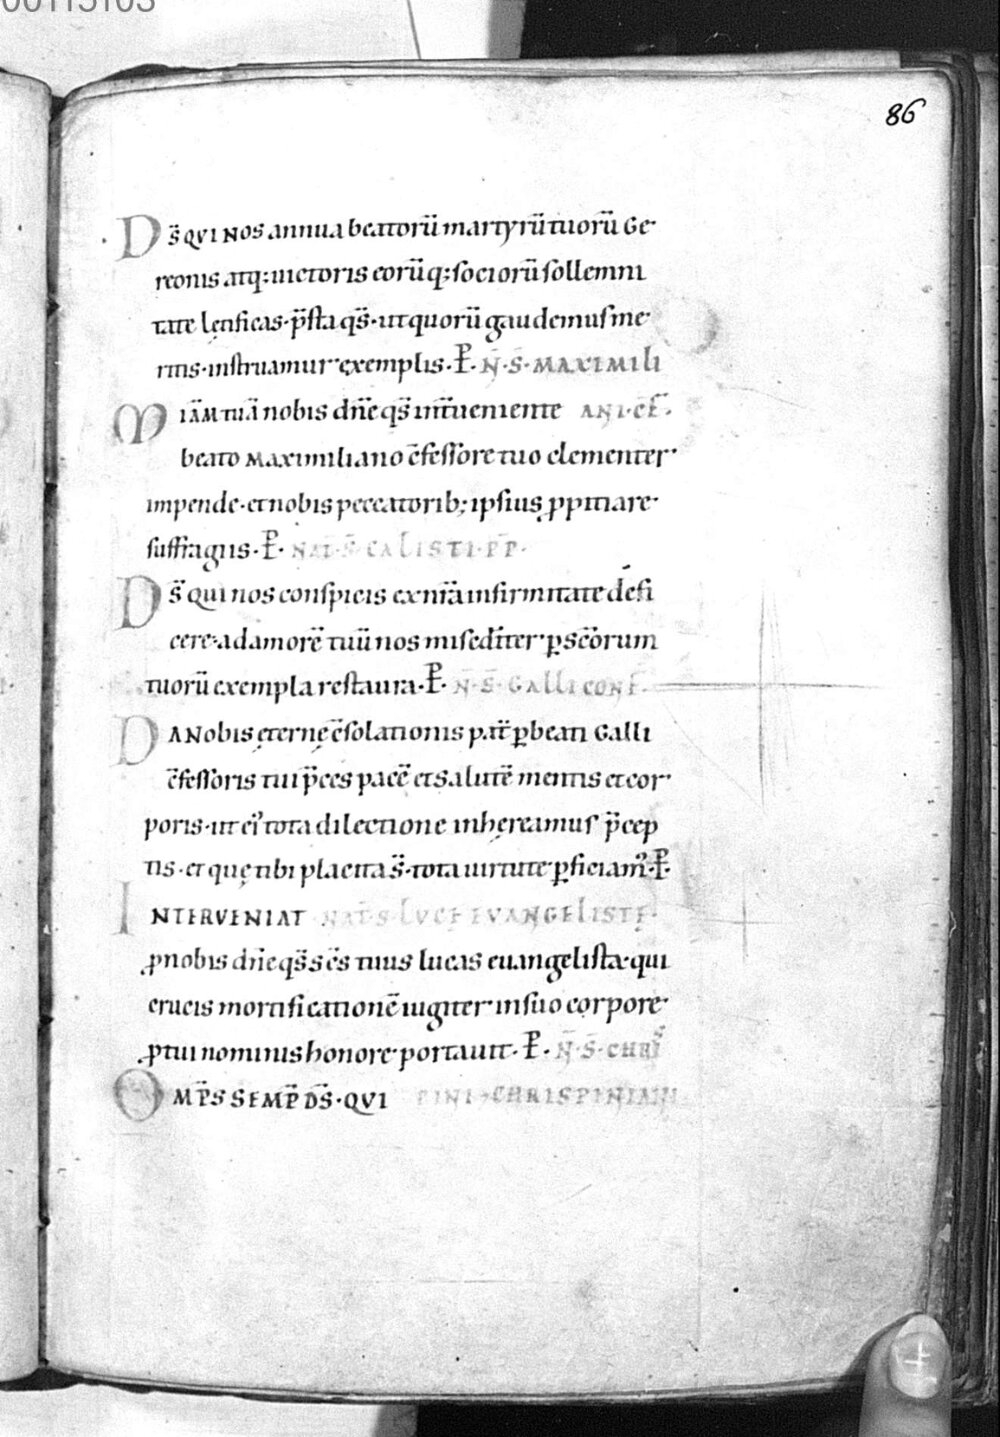 00115103
86
Ds̄ QVI NOS annua beatorū martyrū tuorū Ge
reonis atq; uictoris eorūq; sociorū sollemni
tate lętificas· p̄sta qs̄· ut quorū gaudemus me
ritis· instruamur exemplis. P̄· N̄· S̄· MAXIMILI
MIĀM tuā nobis dn̄e qs̄ int̄ueniente ANI·CF̄·
beato Maximiliano c̄fessore tuo clementer
impende· et nobis peccatorib; ipsius ꝓpitiare
suffragiis· P̄· NAT̄· S̄· CALISTI· PP̄·
Ds̄ qui nos conspicis ex nr̄a infirmitate defi
cere· ad amorē tuū nos misedit̄er· ꝑ sc̄orum
tuorū exempla restaura· P̄· N̄· S̄· GALLI CONF̄·
DA Nobis ęternę c̄solationis pat̄ ꝑ beati Galli
c̄fessoris tui p̄ces pacē et salutē mentis et cor
poris· ut ei tota dilectione inhęreamus p̄cep
tis· et quę tibi placita s̄· tota uirtute ꝑficiam᾿· P̄·
INTERVENIAT NAT̄· S· LVCĘ EVANGELISTĘ·
ꝓ nobis dn̄e qs̄ sc̄s tuus lucas euangelista· qui
crucis mortificationē iugiter in suo corpore
ꝓ tui nominis honore portauit· P̄· N̄· S̄· CHRIS
OMP̄S SEMP̄ DS̄· QVI PINI CHRISPINIANI